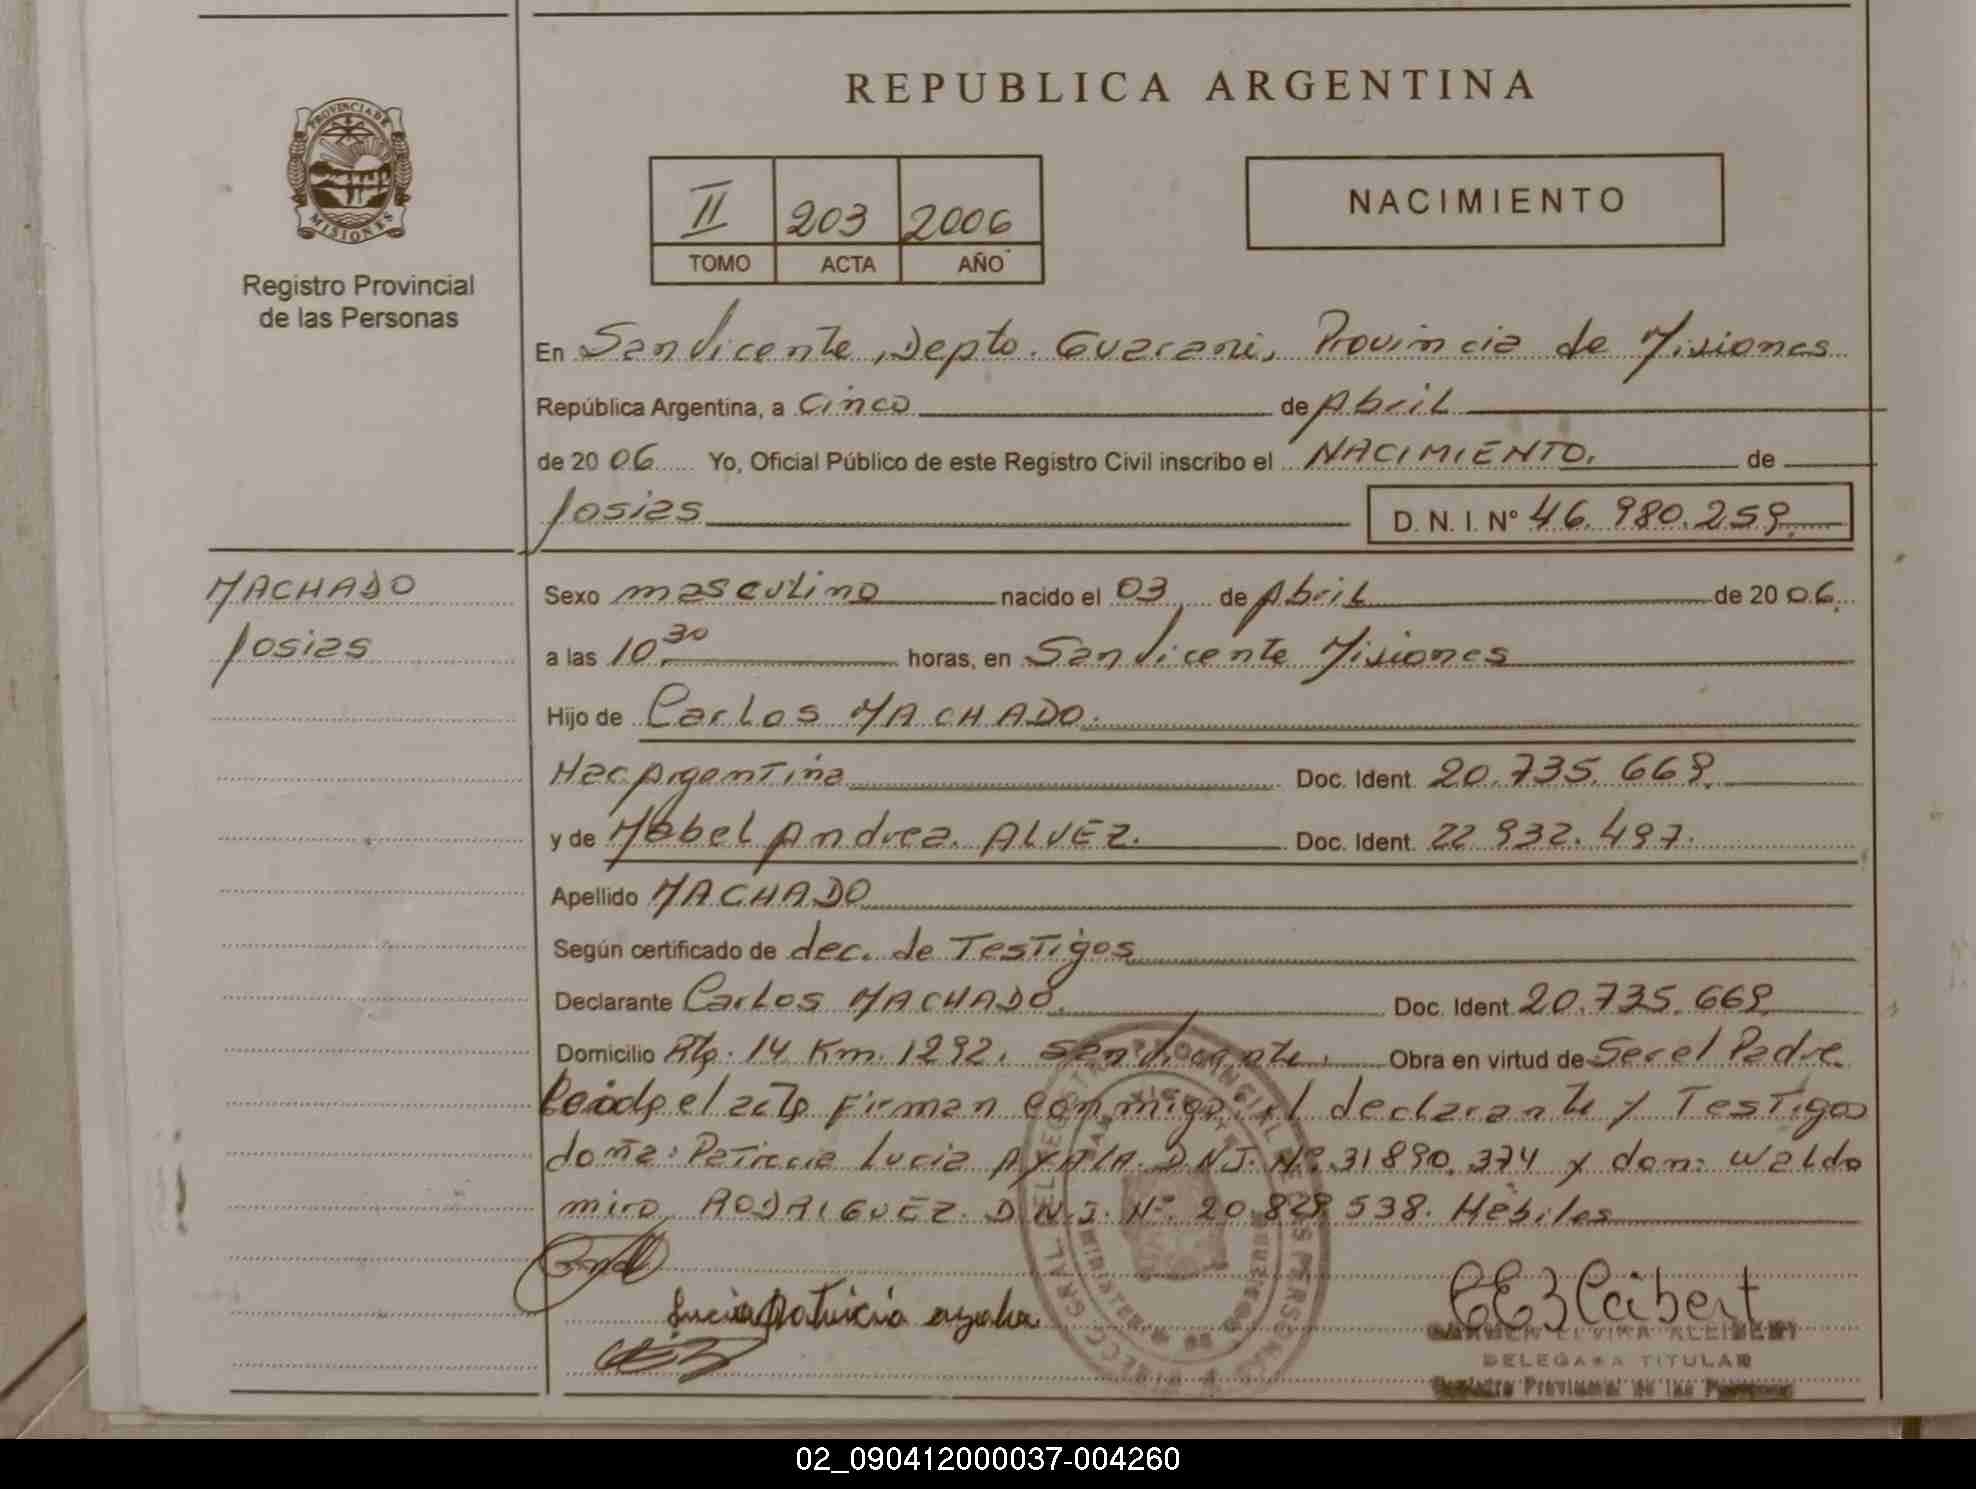 REPUBLICA ARGENTINA
PROVINCIA DE
MISIONES
Registro Provincial
de las Personas
II 203 2006
TOMO ACTA AÑO
NACIMIENTO
En San Vicente, Depto. Guarani, Provincia de Misiones
República Argentina, a Cinco de Abril
de 2006 Yo, Oficial Público de este Registro Civil inscribo el NACIMIENTO. de
Josias D. N. I. N° 46.980.259.
MACHADO
Josias
Sexo masculino nacido el 03 de Abril de 2006.
a las 10,30 horas, en San Vicente Misiones
Hijo de Carlos MACHADO.
Nac Argentina Doc. Ident. 20.735.669.
y de Mabel Andrea. ALVEZ. Doc. Ident. 22 932.497.
Apellido MACHADO
Según certificado de dec. de Testigos
Declarante Carlos MACHADO. Doc. Ident. 20.735.669
Domicilio Rta. 14 Km. 1292. San Vicente. Obra en virtud de Ser el Padre.
Leida el acta Firman conmigo el declarante y Testigos
doña: Patricia Lucia AYALA. D.N.I. Nº.31890.374 y don: Waldo
miro RODRIGUEZ. D.N.I. Nº. 20.829 538. Hábiles
Lucia Patricia ayala
DELEGADA TITULAR
Registro Provincial de las Personas
02_090412000037-004260